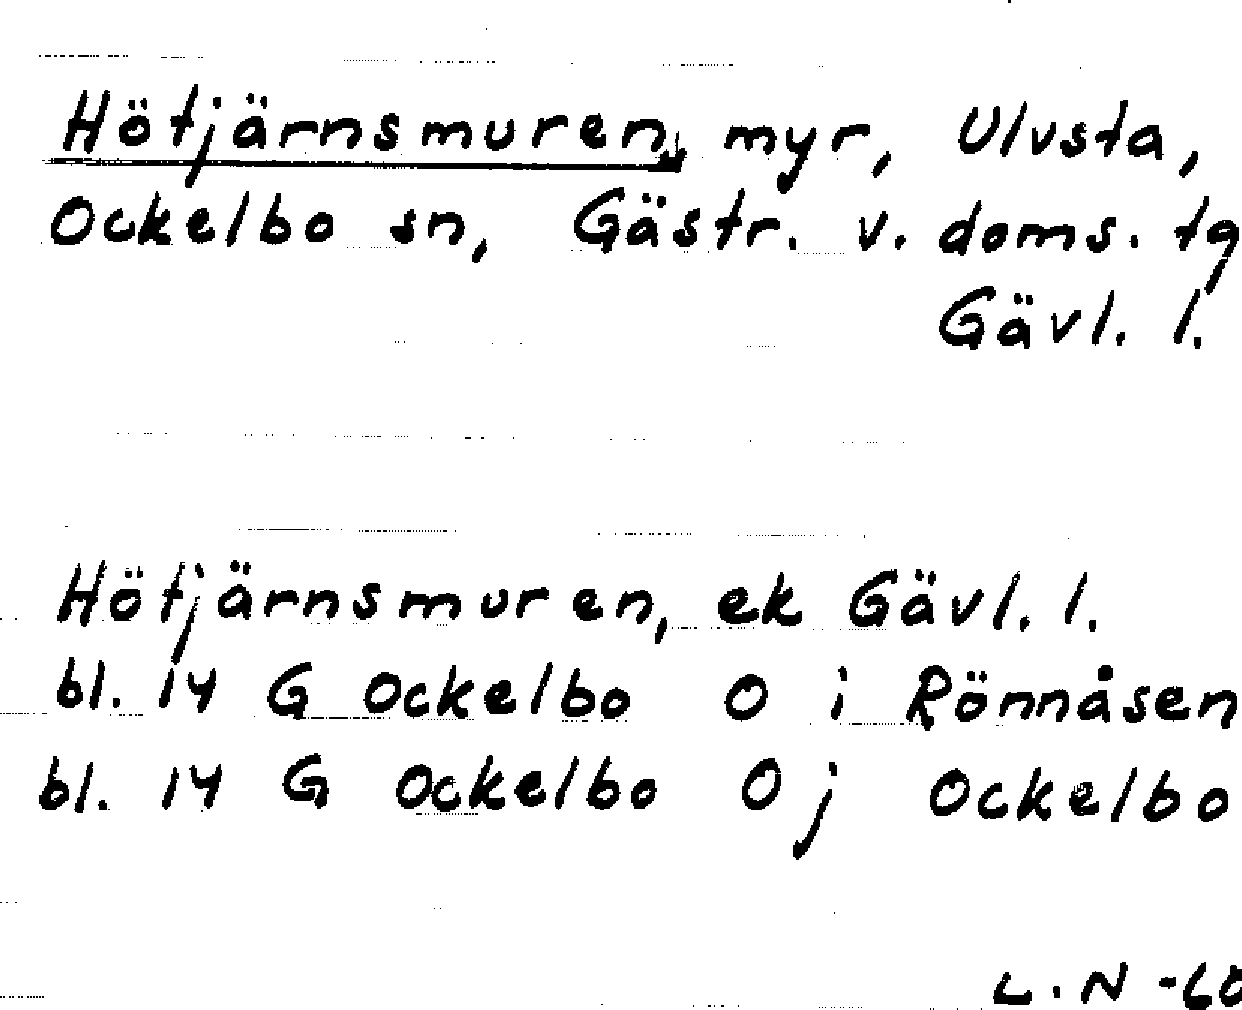 Hötjärnsmuren, myr, Ulvsta,
Ockelbo sn, Gästr. v. doms. tg
Gävl. l.
Hötjärnsmuren, ek Gävl. l.
bl. 14 G Ockelbo O i Rönnåsen
bl. 14 G Ockelbo O j Ockelbo
L.N -60